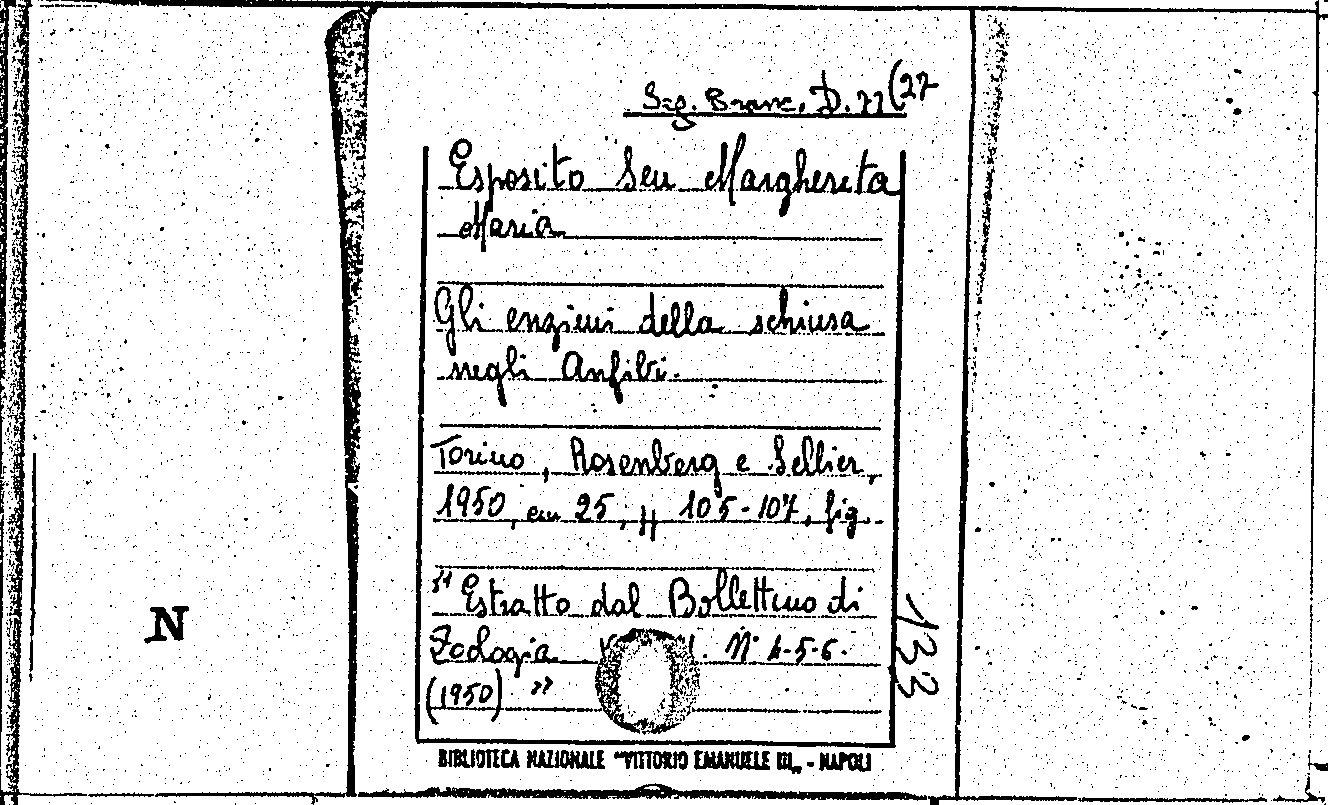 Seg. Branc. D. 22 (27
Esposito Seu Margherita
Maria
Gli enzimi della schiusa
negli Anfibi.
Torino, Rosenberg e Sellier,
1950, cm 25, pp 105-107, fig.
"Estratto dal Bollettino di
Zoologia N° 4-5-6.
(1950) "
133
N
BIBLIOTECA NAZIONALE "VITTORIO EMANUELE III„ - NAPOLI